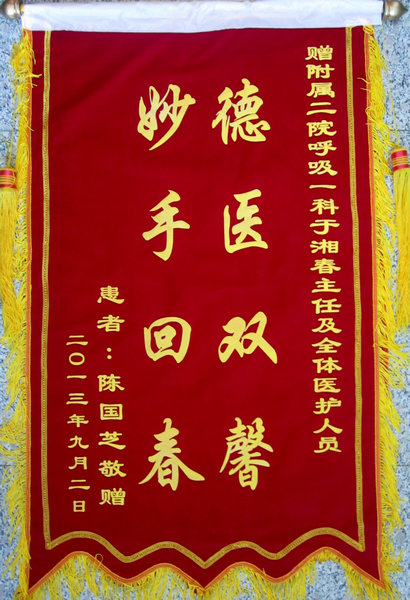 赠附属二院呼吸一科于湘春主任及全体医护人员
德医双馨
妙手回春
患者：陈国芝敬赠
二〇一三年九月二日